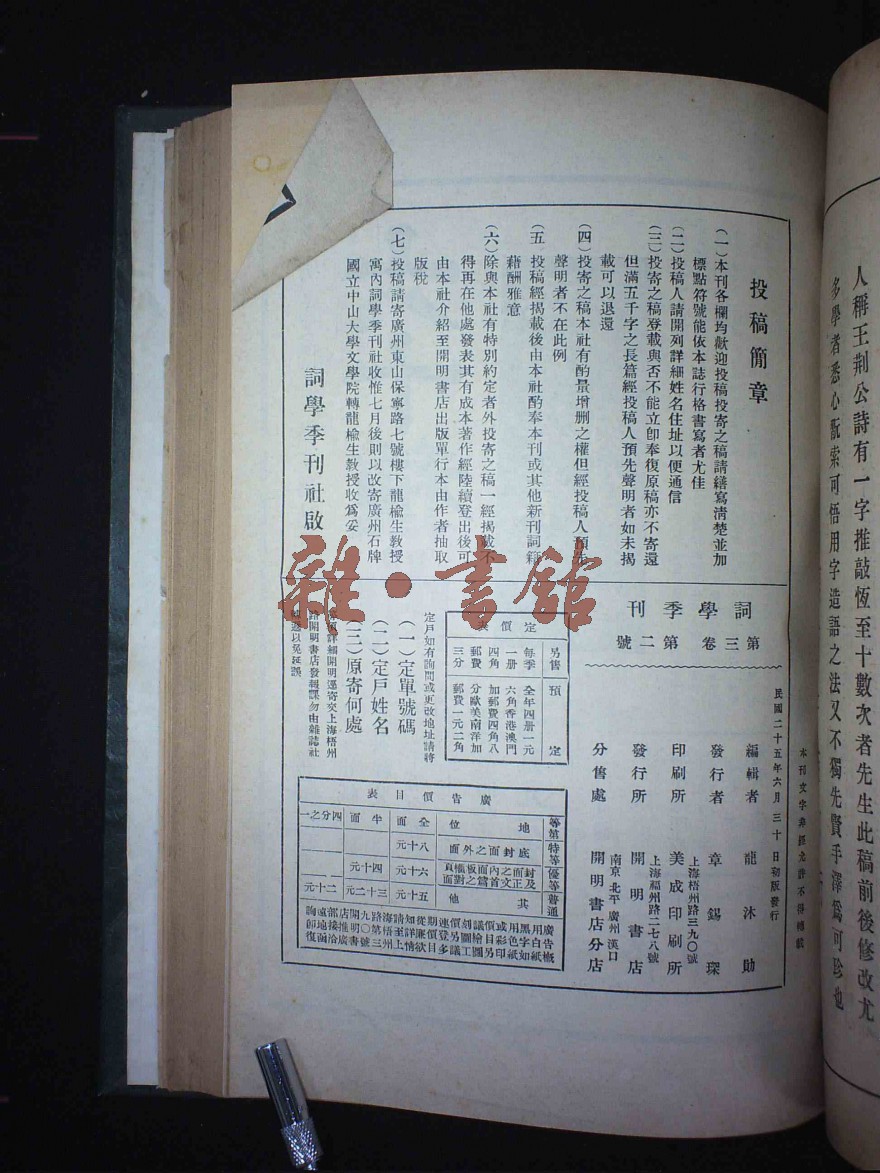 人稱王荆公詩有一字推敲恆至十數次者先生此稿前後修改尤
多學者悉心翫索可悟用字造語之法又不獨先賢手澤爲可珍也
投稿簡章
(一)本刊各欄均歡迎投稿投寄之稿請繕寫清楚並加
標點符號能依本誌行格書寫者尤佳
(二)投稿人請開列詳細姓名住址以便通信
(三)投寄之稿登載與否不能立卽奉復原稿亦不寄還
但滿五千字之長篇經投稿人預先聲明者如未揭
載可以退還
(四)投寄之稿本社有酌量增删之權但經投稿人預先
聲明者不在此例
(五)投稿經揭載後由本社酌奉本刊或其他新刊詞籍
藉酬雅意
(六)除與本社有特別約定者外投寄之稿一經揭載不
得再在他處發表其有成本著作經陸續登出後可
由本社介紹至開明書店出版單行本由作者抽取
版稅
(七)投稿請寄廣州東山保寧路七號樓下龍楡生教授
寓內詞學季刊社收惟七月後則以改寄廣州石牌
國立中山大學文學院轉龍楡生教授收爲妥
詞學季刊社啟
本刊文字非經允許不得轉載
民國二十五年六月三十日初版發行
編輯者 龍沐勛
發行者 章錫琛
上海梧州路三九〇號
印刷所 美成印刷所
上海福州路二七八號
發行所 開明書店
南京 北平 廣州 漢口
分售處 開明書店分店
詞學季刊
第三卷 第二號
定價表
另售 預定
每季 全年四册一元
一册 六角香港澳門
四角 加郵費四角八
郵費 分歐美南洋加
三分 郵費一元二角
定戶如有詢問或更改地址請將
(一)定單號碼
(二)定戶姓名
(三)原寄何處
詳細開明逕寄交上海梧州
路開明書店發報課勿由雜誌社
以免延誤
廣告價目表
等第 地位 全面 半面 四分之一
特等 底封面之外面 八十元
優等 封面之內面及正文首篇之對面 六十元 四十元
普通 其他 五十元 三十二元 二十元